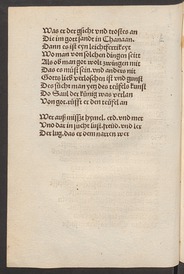 Was er der gsicht vnd trostes an
Die im gott sandt in Chanaan.
Dann es ist eyn leichtfertikeyt
Wo man von solchen dingen seitt
Als ob man got wolt zwingen mit
Das es muͤst sein. vnd anders nit
Gotts lieb verloschen ist vnd gunst
Des sůcht man yetz des teüfels kunst
Do Saul der künig was verlan
Von got. růfft er den teüfel an

Wer auß mißt hymel. erd. vnd mer
Vnd dar in sůcht lust. freüd. vnd ler
Der lůg. das er dem narren wer